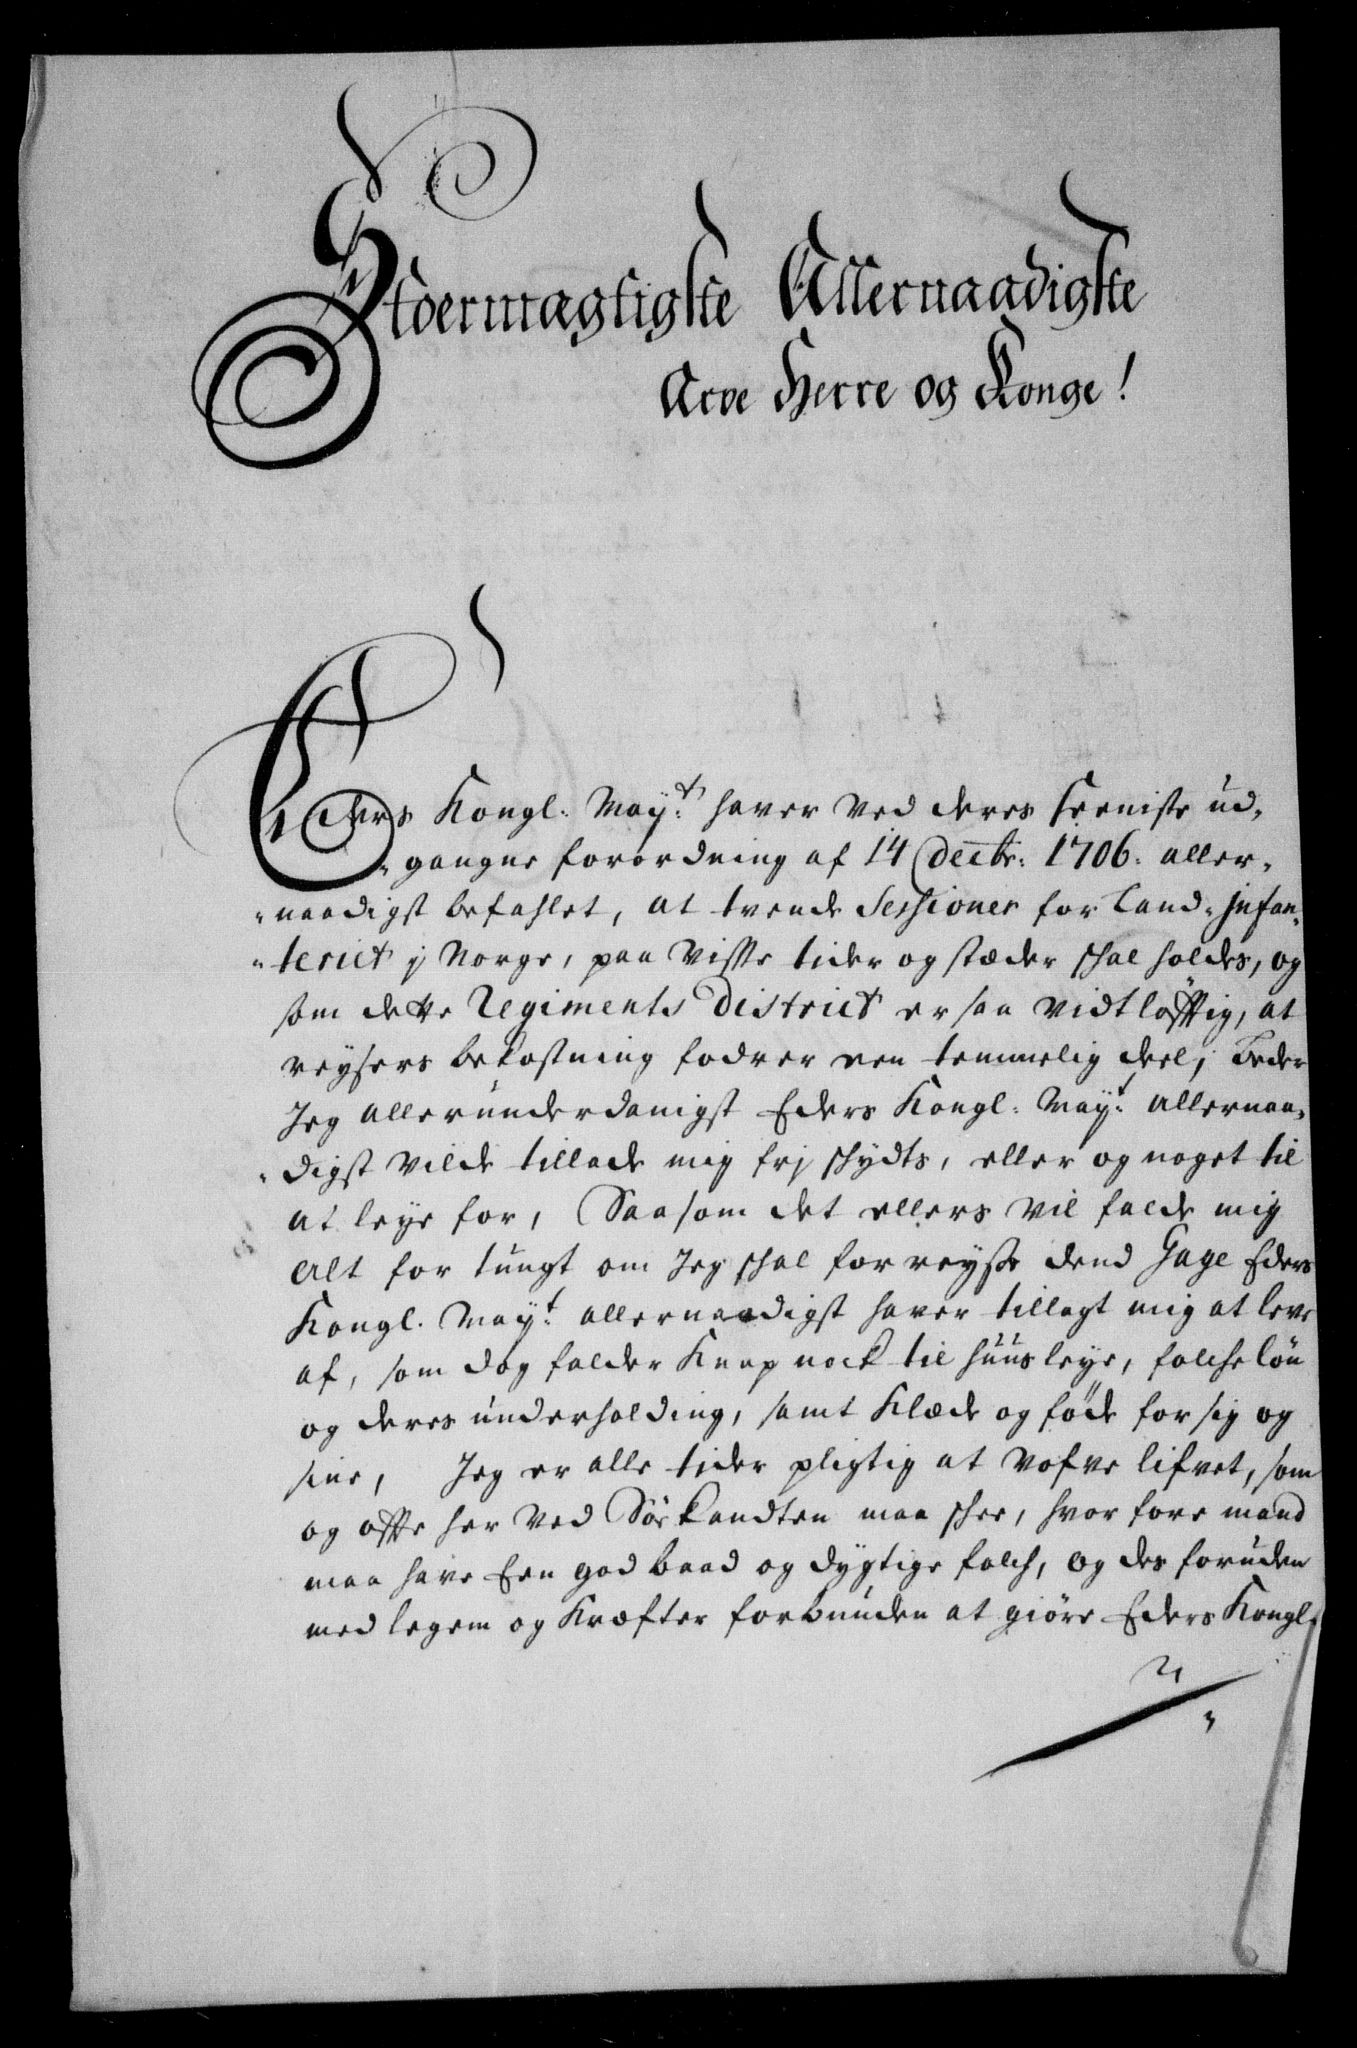 Stoermægtigste Allernaadigste
Arve Herre og Konge!
Eders Kongl: May:t haver ved deres seeniste ud-
-gangne forordning af 14 Decbr: 1706. aller-
-naadigst befahlet, at tvende Sessioner for Land-Infan-
-teriet j Norge, paa visse tider og stæder schal holdes, og
som dette Regiments District er saa vidtløfftig, at
reysers bekostning fodrer een temmelig deel, Beder
Jeg allerunderdanigst Eders Kongl: May:t allernaa-
-digst vilde tillade mig frj schydts, eller og noget til
at leye for, Saasom det ellers vil falde mig
alt for tungt om Jeg schal forreyse dend Gage Eders
Kongl. May:t allernaadigst haver tillagt mig at leve
af, som dog falder knap nock til huusleye, folcheløn
og deres underholding, samt Klæde og føde for sig og
sine, Jeg er alle tider pligtig at vofve lifvet, som
og offte her ved Søekandten maa schee, hvorfore mand
maa have Een god baad og dygtige folch, og des foruden
med legem og Kræfter forbunden at giöre Eders Kongl: